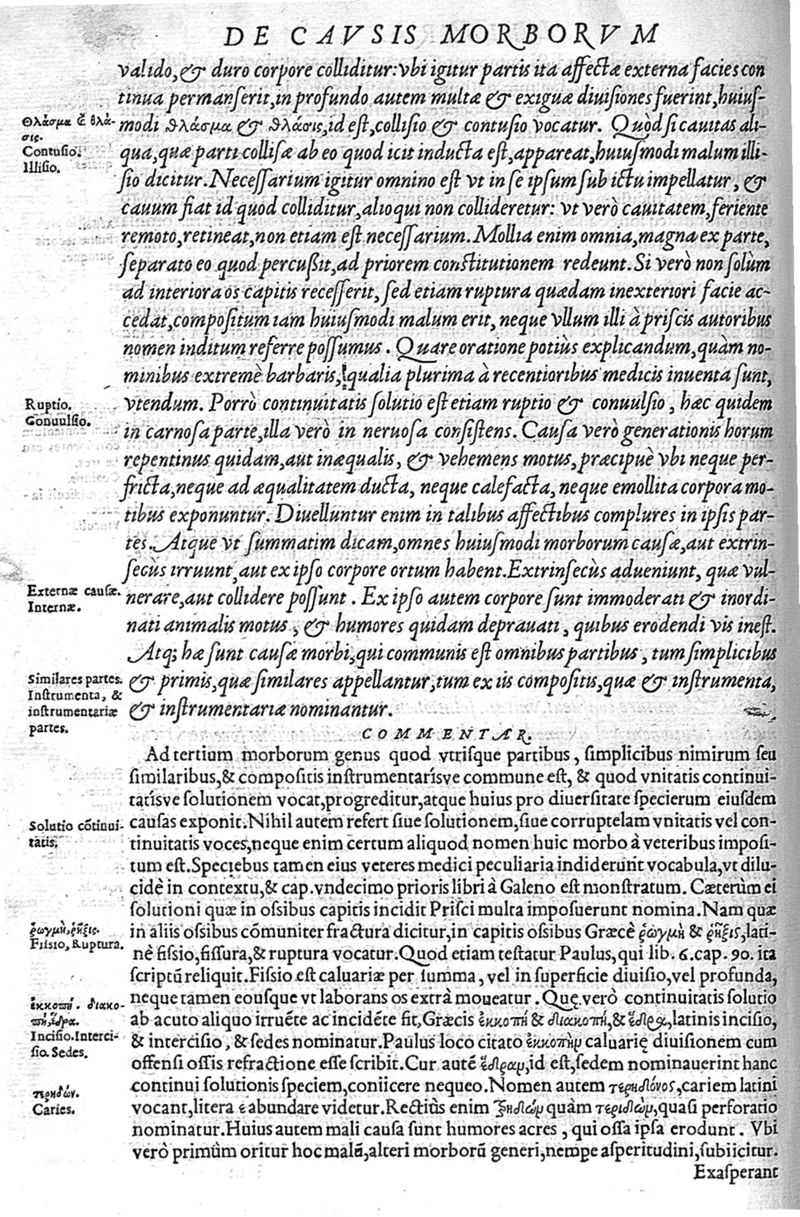 DE CAVSIS MORBORVM
valido, & duro corpore colliditur: vbi igitur partis ita affectæ externa facies con
tinua permanserit, in profundo autem multæ & exiguæ diuisiones fuerint, huius-
Θλάσμα & θλά-
σις.
Contusio.
Illisio.
modi θλάσμα & θλάσις, id est, collisio & contusio vocatur. Quòd si cauitas ali-
qua, quæ parti collisæ ab eo quod icit inducta est, appareat, huiusmodi malum illi-
sio dicitur. Necessarium igitur omnino est vt in se ipsum sub ictu impellatur, &
cauum fiat id quod colliditur, alioqui non collideretur: vt verò cauitatem, feriente
remoto, retineat, non etiam est necessarium. Mollia enim omnia, magna ex parte,
separato eo quod percußit, ad priorem constitutionem redeunt. Si verò non solùm
ad interiora os capitis recesserit, sed etiam ruptura quædam in exteriori facie ac-
cedat, compositum iam huiusmodi malum erit, neque vllum illi à priscis autoribus
nomen inditum referre possumus. Quare oratione potiùs explicandum, quàm no-
minibus extremè barbaris, qualia plurima à recentioribus medicis inuenta sunt,
Ruptio.
Conuulsio.
vtendum. Porrò continuitatis solutio est etiam ruptio & conuulsio, hæc quidem
in carnosa parte, illa verò in neruosa consistens. Causa verò generationis horum
repentinus quidam, aut inæqualis, & vehemens motus, præcipuè vbi neque per-
fricta, neque ad æqualitatem ducta, neque calefacta, neque emollita corpora mo-
tibus exponuntur. Diuelluntur enim in talibus affectibus complures in ipsis par-
tes. Atque vt summatim dicam, omnes huiusmodi morborum causæ, aut extrin-
secùs irruunt, aut ex ipso corpore ortum habent. Extrinsecùs adueniunt, quæ vul-
Externæ causæ.
Internæ.
nerare, aut collidere possunt. Ex ipso autem corpore sunt immoderati & inordi-
nati animalis motus, & humores quidam deprauati, quibus erodendi vis inest.
Atq; hæ sunt causæ morbi, qui communis est omnibus partibus, tum simplicibus
Similares partes.
Instrumenta, &
instrumentariæ
partes.
& primis, quæ similares appellantur, tum ex iis compositis, quæ & instrumenta,
& instrumentariæ nominantur.
COMMENTAR.
Ad tertium morborum genus quod vtrisque partibus, simplicibus nimirum seu
similaribus, & compositis instrumentarisve commune est, & quod vnitatis continui-
tatisve solutionem vocat, progreditur, atque huius pro diuersitate specierum eiusdem
Solutio cōtinui-
tatis.
causas exponit. Nihil autem refert siue solutionem, siue corruptelam vnitatis vel con-
tinuitatis voces, neque enim certum aliquod nomen huic morbo à veteribus imposi-
tum est. Speciebus tamen eius veteres medici peculiaria indiderūt vocabula, vt dilu-
cidè in contextu, & cap. vndecimo prioris libri à Galeno est monstratum. Cæterùm ei
solutioni quæ in ossibus capitis incidit Prisci multa imposuerunt nomina. Nam quæ
ῥωγμὴ, ῥῆξις.
Fissio, Ruptura.
in aliis ossibus cōmuniter fractura dicitur, in capitis ossibus Græcè ῥωγμὴ & ῥῆξις, lati-
nè fissio, fissura, & ruptura vocatur. Quod etiam testatur Paulus, qui lib. 6. cap. 90. ita
scriptū reliquit. Fissio est caluariæ per summa, vel in superficie diuisio, vel profunda,
ἐκκοπή. διακο-
πή, ἕδρα.
Incisio. Interci-
sio. Sedes.
neque tamen eousque vt laborans os extrà moueatur. Quę verò continuitatis solutio
ab acuto aliquo irruēte ac incidēte fit, Græcis ἐκκοπή & διακοπή, & ἕδρα, latinis incisio,
& intercisio, & sedes nominatur. Paulus loco citato ἐκκοπὴν caluarię diuisionem cum
offensi ossis refractione esse scribit. Cur autē ἕδραν, id est, sedem nominauerint hanc
continui solutionis speciem, coniicere nequeo. Nomen autem τερηδόνος, cariem latini
τερηδών.
Caries.
vocant, litera ε abundare videtur. Rectiùs enim τρηδὼν quàm τεριδὼν, quasi perforatio
nominatur. Huius autem mali causa sunt humores acres, qui ossa ipsa erodunt. Vbi
verò primùm oritur hoc malū, alteri morborū generi, nempe asperitudini, subiicitur.
Exasperant